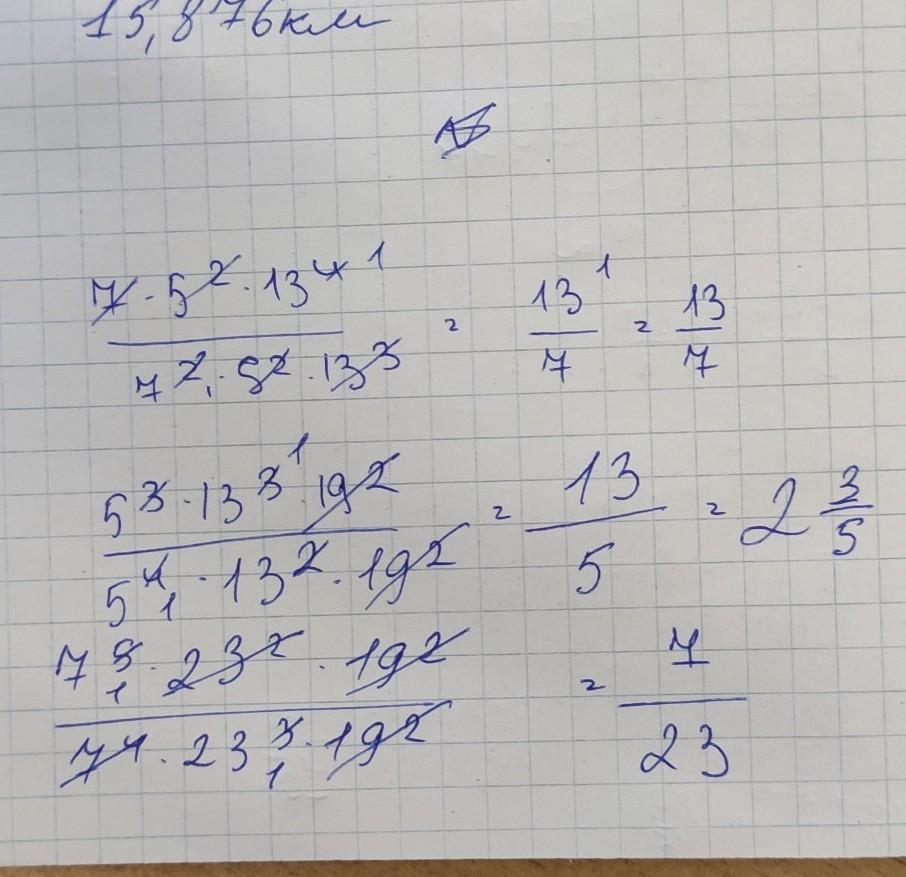 15,876км
7 · 5² · 13⁴ 1
7² · 5² · 13³
= 13¹/7 = 13/7
5³ · 13³ 1 · 19²
5⁴ 1 · 13² · 19²
= 13/5 = 2 3/5
7⁵ 1 · 23² · 19²
7⁴ · 23³ 1 · 19²
= 7/23